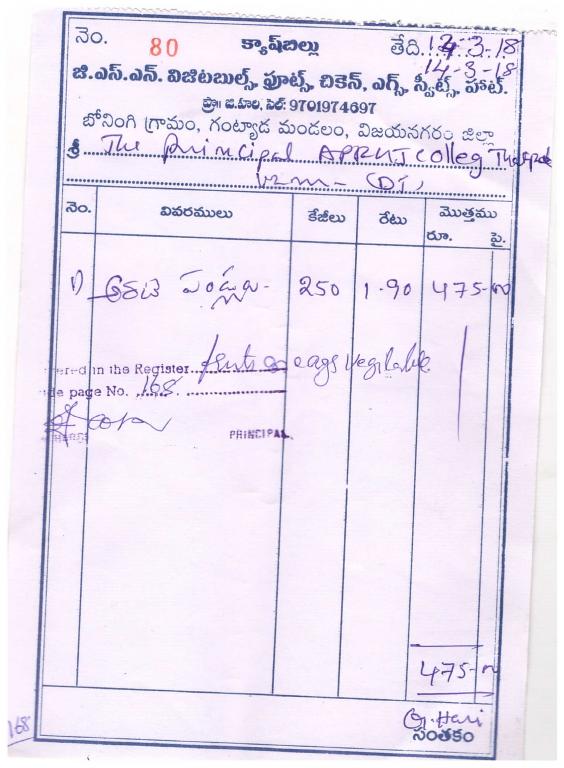 నెం. 80 క్యాష్‌బిల్లు తేది. 14-3-18
14-3-18
జి.ఎస్.ఎన్. విజిటబుల్స్, ఫ్రూట్స్, చికెన్, ఎగ్స్, స్వీట్స్, హాట్.
ప్రొ॥ జి.హరి, సెల్: 9701974697
బోనింగి గ్రామం, గంట్యాడ మండలం, విజయనగరం జిల్లా
శ్రీ The Principal APRWJ Colleg
VZM - (DT)
నెం. వివరములు కేజీలు రేటు మొత్తము
రూ. పై.
1) అరటి పండ్లు - 250 1-90 475-00
ered in the Register fruits eggs vegitable
de page No. 168
PRINCIPAL
475-00
G. Hari
సంతకం
168